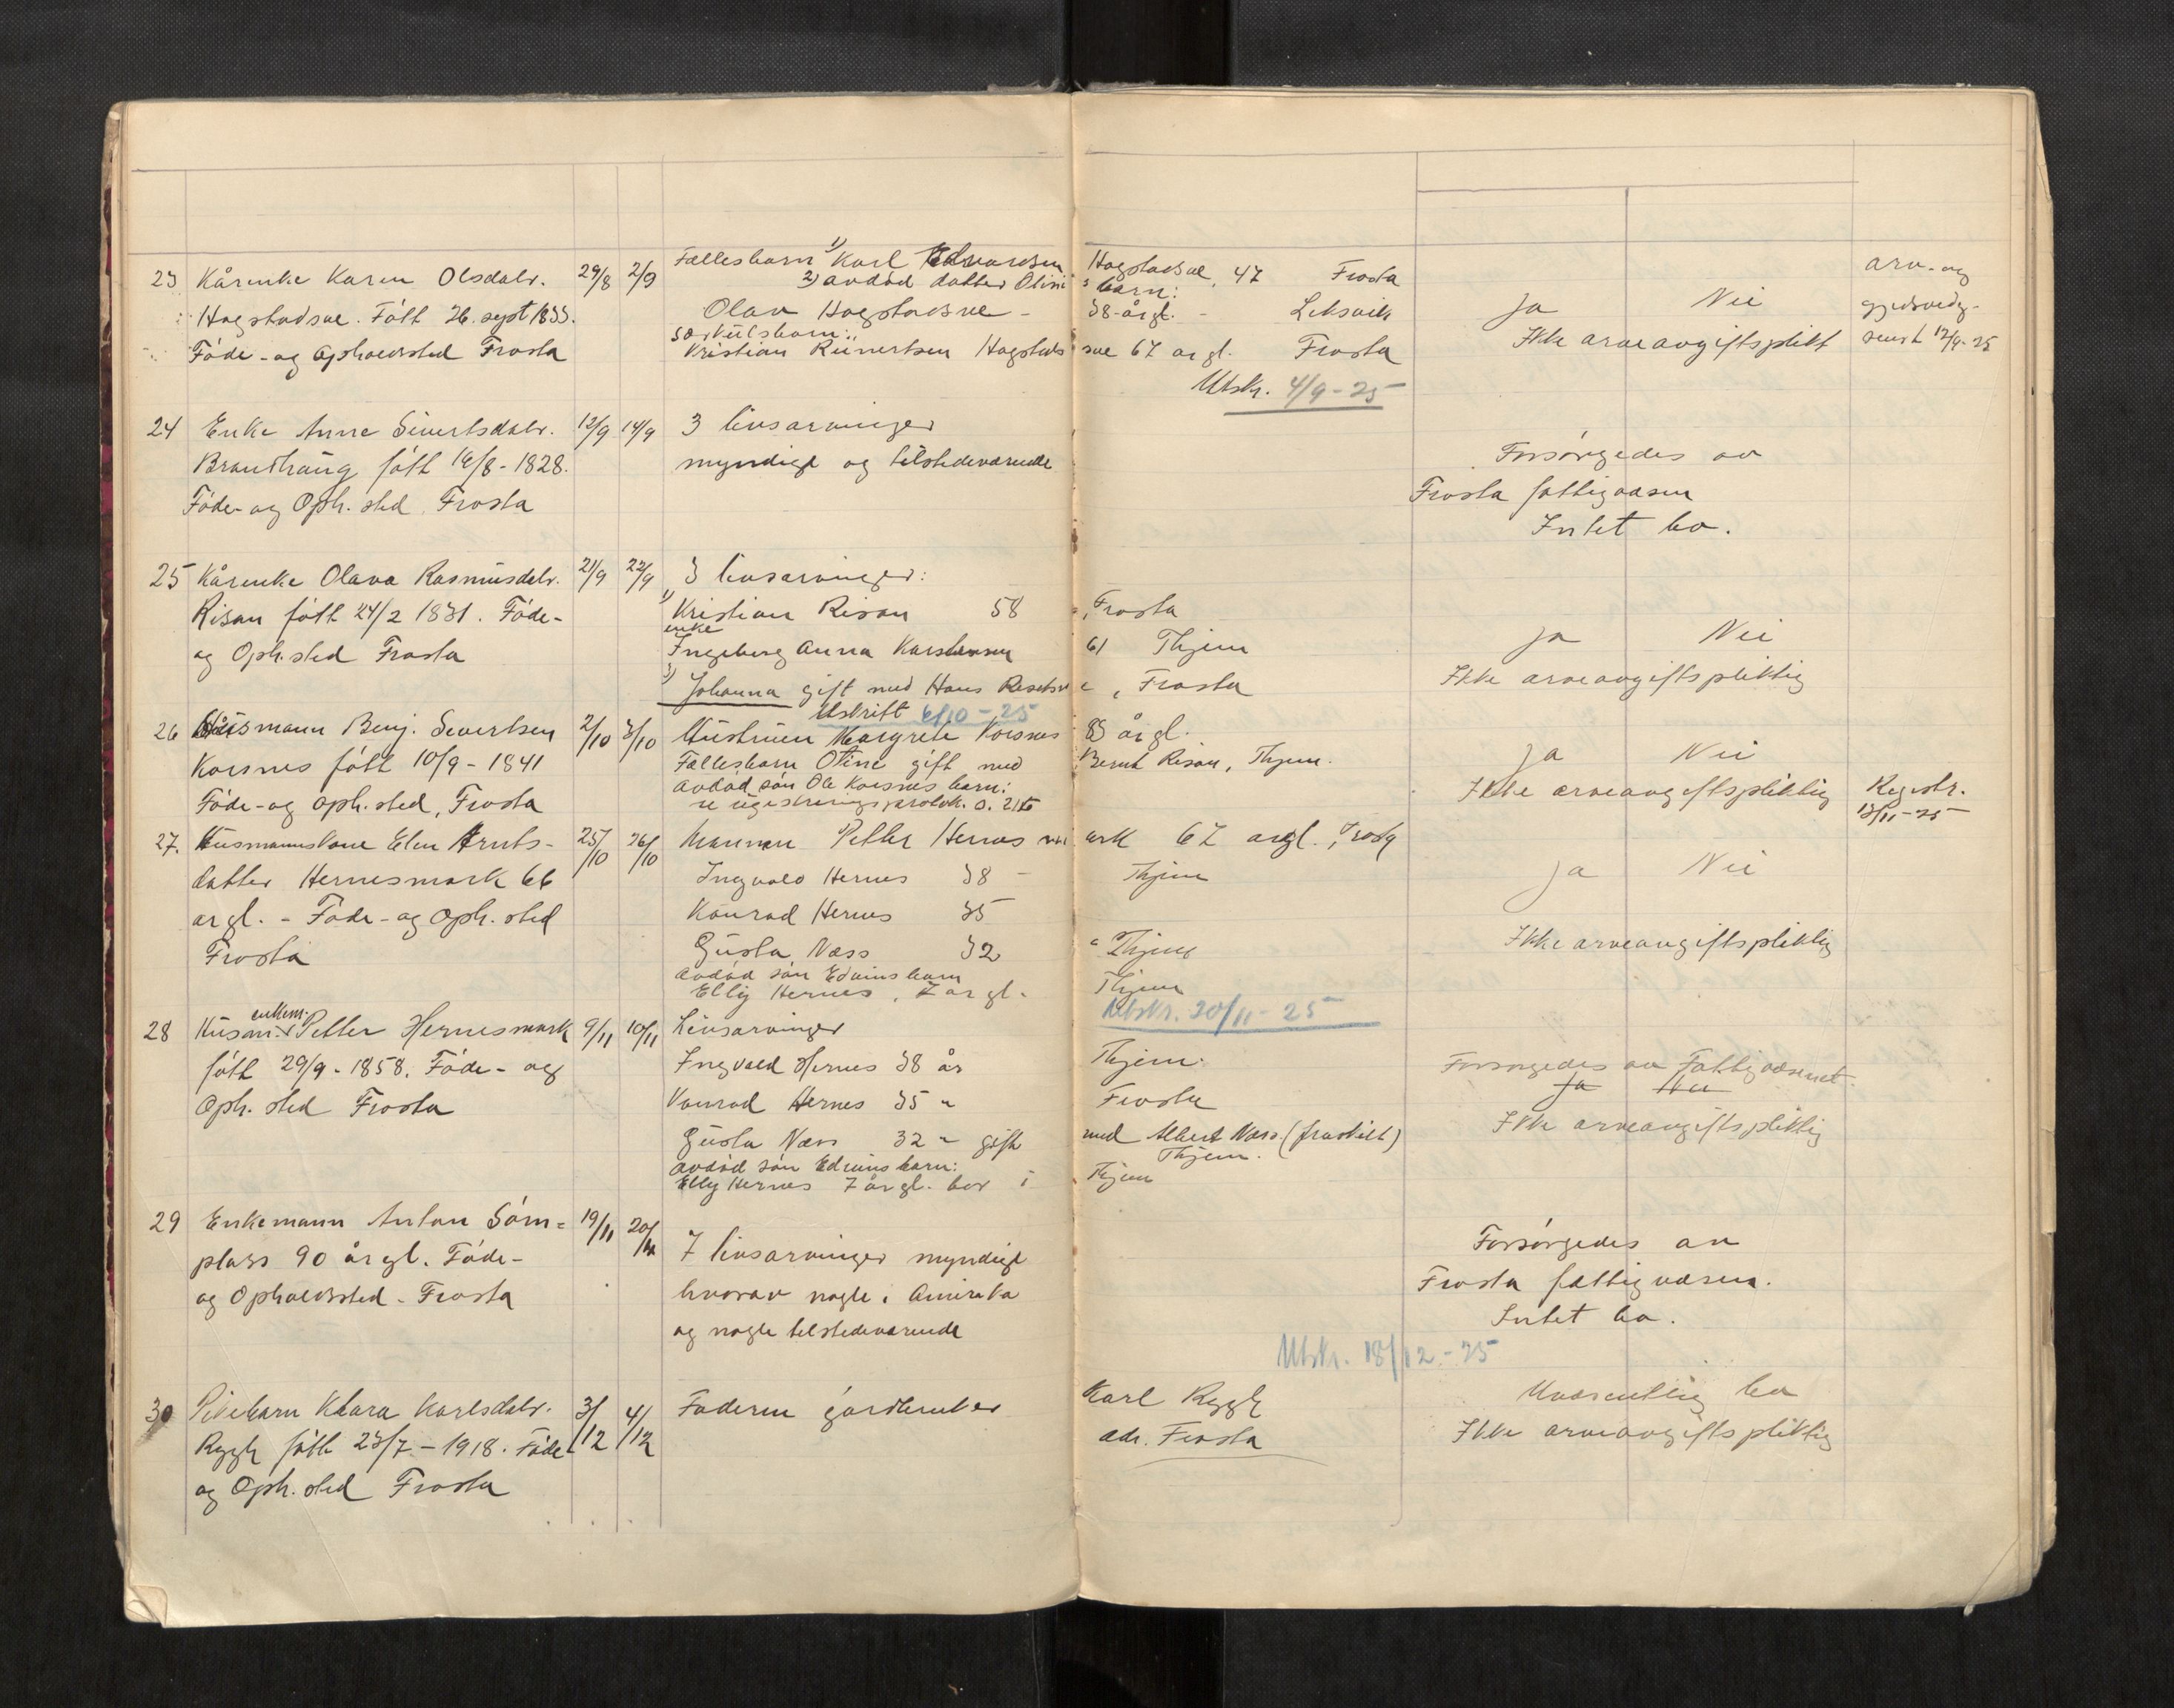 23 Kårenke Karen Olsdatr. 29/8 2/9 Fællesbarn 1) Karl Edvardsen Hogstadsve, 47 Frosta
2) avdød datter Olines barn:
Hogstadsve. Født 26. sept 1833. Olav Hogstadsve - 38 årgl. - Leksvik Ja Nei
særkulsbarn:
Føde- og Opholdssted Frosta Kristian Reinertsen Hogstadsve 67 årgl. Frosta Ikke arveavgiftsplikt
arv- og
gjeldsvedg-
sendt 12/9-25
Utskr. 4/9-25
24 Enke Anne Sivertsdatr. 13/9 14/9 3 livsarvinger
Brandhaug født 16/8-1828. myndige og tilstedeværende Forsørgedes av
Føde- og Oph. sted, Frosta Frosta fattigvæsen
Intet bo.
25 Kårenke Olava Rasmusdatr. 21/9 22/9 3 livsarvinger:
Risan født 24/2 1831. Føde- 1) Kristian Risan 58 ", Frosta
enke
og Oph.sted Frosta Ingeborg Anna Karstensen 61 Thjem Ja Nei
3) Johanna gift med Hans Resetsve, Frosta Ikke arveavgiftspliktig
Utskrift 6/10-25
26 Husmann Benj. Severtsen 2/10 3/10 Hustruen Margrete Korsnes 83 årgl.
Korsnes født 10/9-1841 Fællesbarn Otine gift med Bernt Risan, Thjem. Ja Nei
avdød søn Ole Korsnes barn:
Føde- og oph.sted, Frosta se registreringsprotok. s. 216 Ikke arveavgiftspliktig Registr.
13/11-25
27. Husmannskone Elen Arnts- 25/10 26/10 Mannen Petter Hernesmark 67 årgl., Frosta
datter Hernesmark 66 Ingvald Hernes 38 - Thjem Ja Nei
årgl. - Føde- og Oph. sted Konrad Hernes 35
Frosta Gusta Næss 32 " Thjem Ikke arveavgiftspliktig
avdød søn Edvins barn
Elly Hernes, 7 årgl. Thjem
Utskr. 20/11-25
28 Husm. enkem. Petter Hernesmark 9/11 10/11 Livsarvinger
født 29/9-1858. Føde- og Ingvald Hernes 38 år Thjem. Forsørgedes av Fattigvæsenet.
Ja Nei
Oph. sted Frosta Konrad Hernes 35 " Frosta Ikke arveavgiftspliktig
Gusta Næss 32 " gift med Albert Næss (fraskilt)
Thjem.
avdød søn Edvins barn:
Elly Hernes 7 årgl. bor i Thjem
29 Enkemann Anton Søm- 19/11 20/11
plass 90 årgl. Føde- 7 livsarvinger myndige Forsørgedes av
og Opholdssted - Frosta hvorav nogle i Amerika Frosta fattigvæsen.
og nogle tilstedeværende Intet bo.
Utskr. 18/12-25
30 Pikebarn Klara Karlsdatr. 3/12 4/12 Faderen gårdbruker Karl Rygh Uvæsentlig bo
Rygh født 23/7-1918. Føde adr. Frosta Ikke arveavgiftspliktig
og Oph. sted Frosta